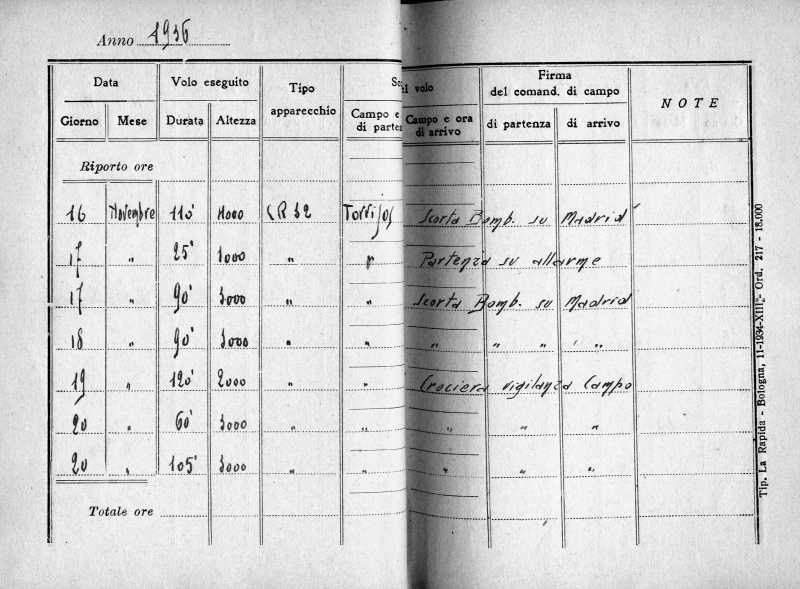 Anno 1936
Data Volo eseguito Tipo apparecchio il volo Firma del comand. di campo NOTE
Giorno Mese Durata Altezza Campo e di parten Campo e ora di arrivo di partenza di arrivo
Riporto ore
16 Novembre 110' 4000 CR 32 Torrijos Scorta Bomb. su Madrid
17 " 25' 1000 " " Partenza su allarme
17 " 90' 3000 " " Scorta Bomb. su Madrid
18 " 90' 3000 " " " " " "
19 " 120' 2000 " " Crociera vigilanza Campo
20 " 60' 3000 " " " " "
20 " 105' 3000 " " " " "
Totale ore
Tip. La Rapida - Bologna, 11-1934-XIII - Ord. 217 - 18.000